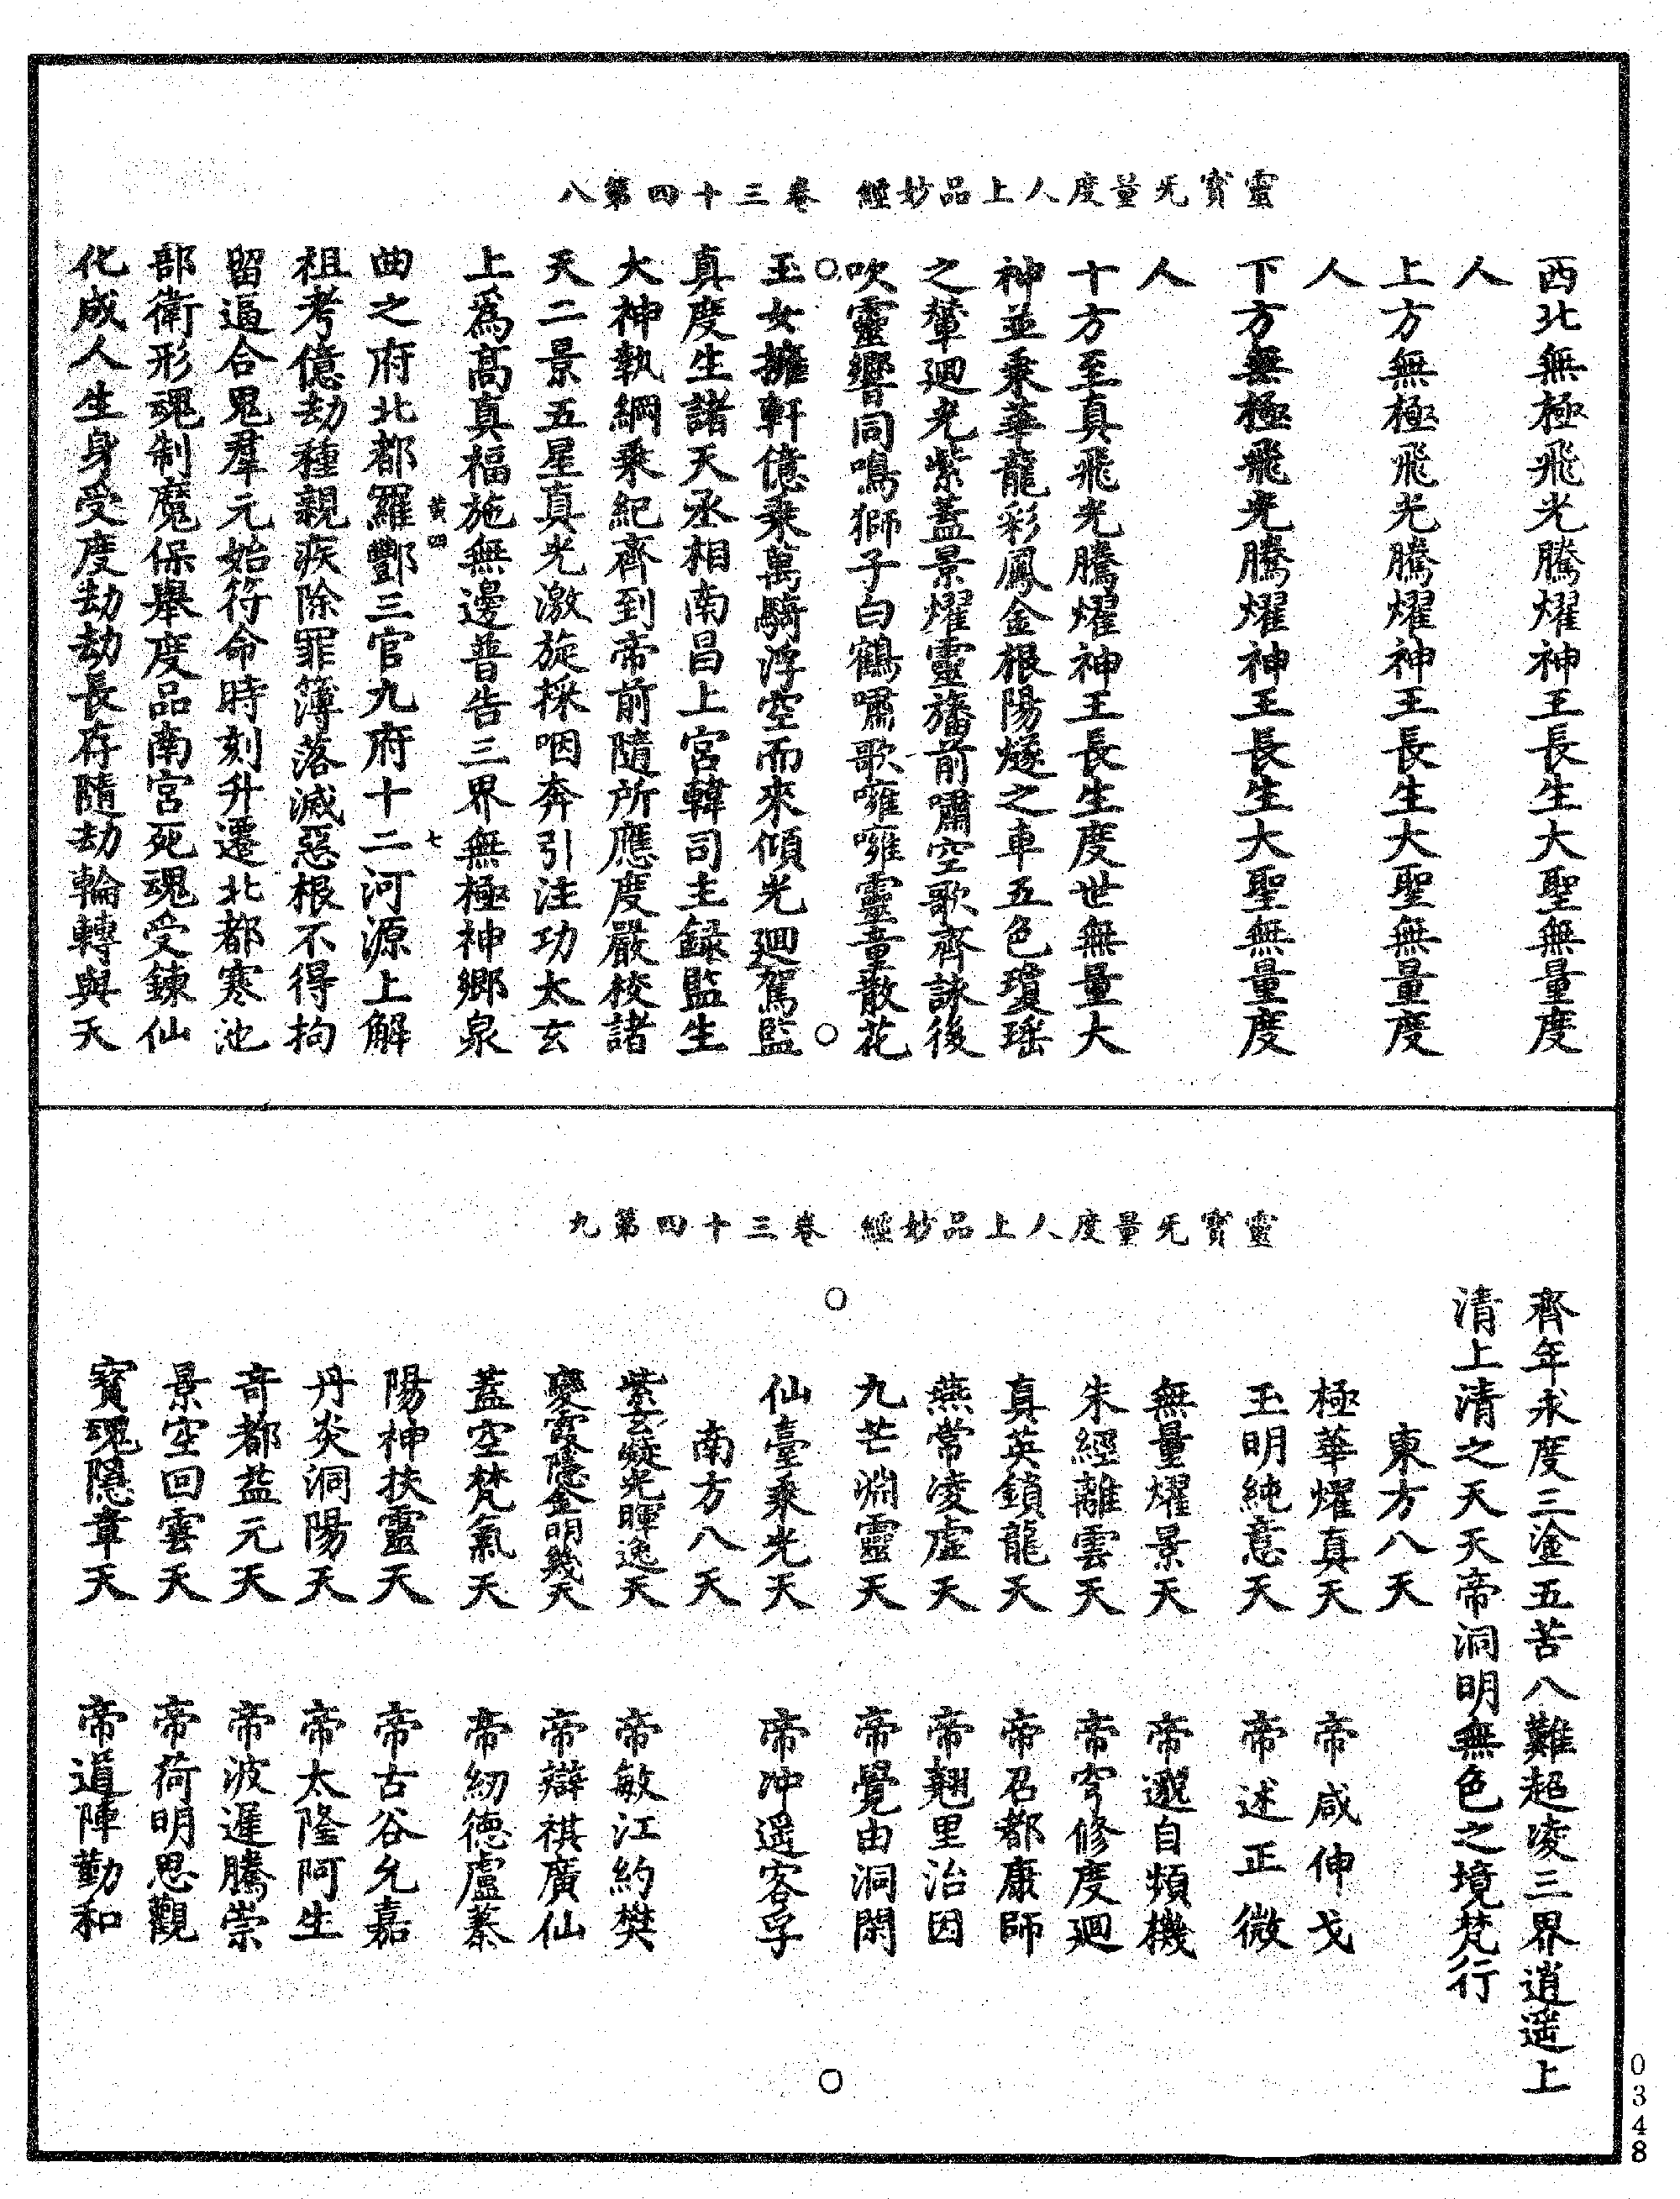 靈寳无量度人上品妙經　卷三十四第八
西北無極飛光騰燿神王長生大聖無量度
人
上方無極飛光騰燿神王長生大聖無量度
人
下方無極飛光騰燿神王長生大聖無量度
人
十方至真飛光騰燿神王長生度世無量大
神並乘華龍彩鳳金根陽燧之車五色瓊瑶
之輦迴光紫蓋景燿靈旛前嘯空歌齊詠後
吹靈響同鳴獅子白鶴嘯歌嗈嗈靈童散花
玉女擁軒億乘萬騎浮空而來傾光迴駕監
真度生諸天丞相南昌上宫韓司主録監生
大神執綱乘紀齊到帝前隨所應度嚴校諸
天二景五星真光激旋採咽奔引注功太玄
上爲高真福施無邊普告三界無極神鄉泉
黄四　七
曲之府北都羅酆三官九府十二河源上解
祖考億劫種親疾除罪簿落滅惡根不得拘
留逼合鬼羣元始符命時刻升遷北都寒池
部衛形魂制魔保舉度品南宫死魂受鍊仙
化成人生身受度劫劫長存隨劫輪轉與天
靈寳无量度人上品妙經　卷三十四第九
齊年永度三塗五苦八難超凌三界逍遥上
清上清之天天帝洞明無色之境梵行
東方八天
極華燿真天　帝咸伸戈
玉明純意天　帝述正微
無量燿景天　帝邈自頻機
朱經離雲天　帝穹修度迴
真英鎖龍天　帝召都康師
燕常凌虚天　帝翹里治因
九芒淵靈天　帝覺由洞開
仙臺乘光天　帝冲遥客孚
南方八天
紫玄凝光暉逸天　帝敏江約樊
夔雷隱金明幾天　帝辯祺廣仙
蓋空梵氣天　帝紉德盧綦
陽神扶靈天　帝古谷允嘉
丹炎洞陽天　帝太隆阿生
奇都益元天　帝波遲騰崇
景空回雲天　帝荷明思觀
寳魂隱章天　帝道陣勤和
0348